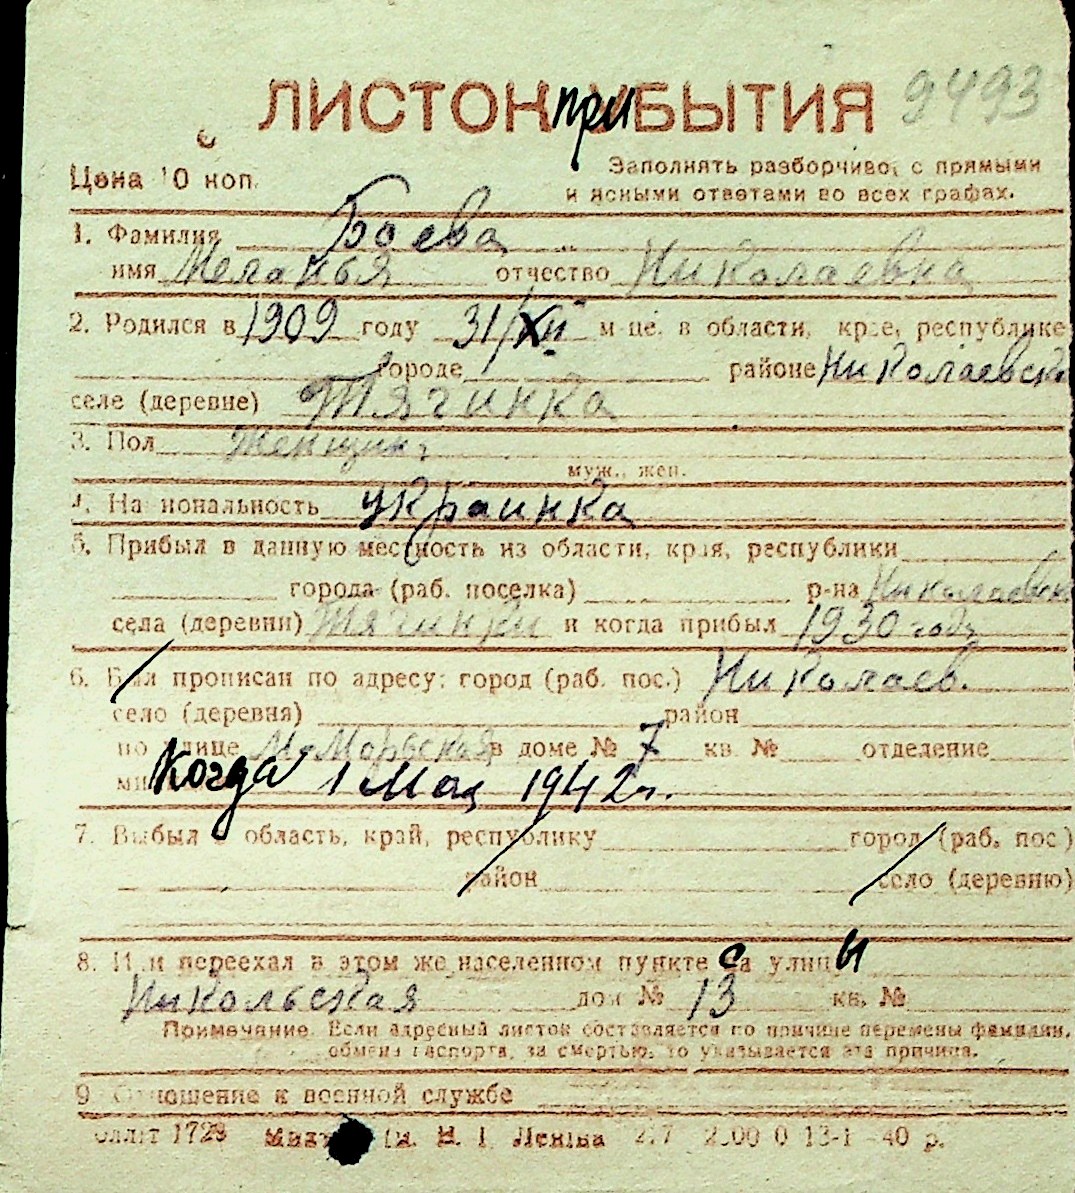 ЛИСТОК при БЫТИЯ 9493
Цена 10 коп.
Заполнять разборчиво, с прямыми
и ясными ответами во всех графах.
1. Фамилия Боева
имя Меланья отчество Николаевна
2. Родился в 1909 году 31/XII м-це, в области, крае, республике
городе районе Николаевск
селе (деревне) Тягинка
3. Пол Женщин
муж., жен.
4. Национальность украинка
5. Прибыл в данную местность из области, края, республики
города (раб. поселка) р-на Николаевск
села (деревни) Тягинки и когда прибыл 1930 году
6. Был прописан по адресу: город (раб. пос.) Николаев.
село (деревня) район
по улице М-Морьская в доме № 7 кв № отделение
Когда 1 Мая 1942 г.
7. Выбыл в область, край, республику город (раб. пос.)
район село (деревню)
8. Или переехал в этом же населенном пункте са улицы
Никольская дом № 13 кв. №
Примечание. Если адресный листок составляется по причине перемены фамилии,
обмена паспорта, за смертью, то указывается эта причина.
9. Отношение к военной службе
1728 Ім. В. І. Леніна 13-І-40 р.